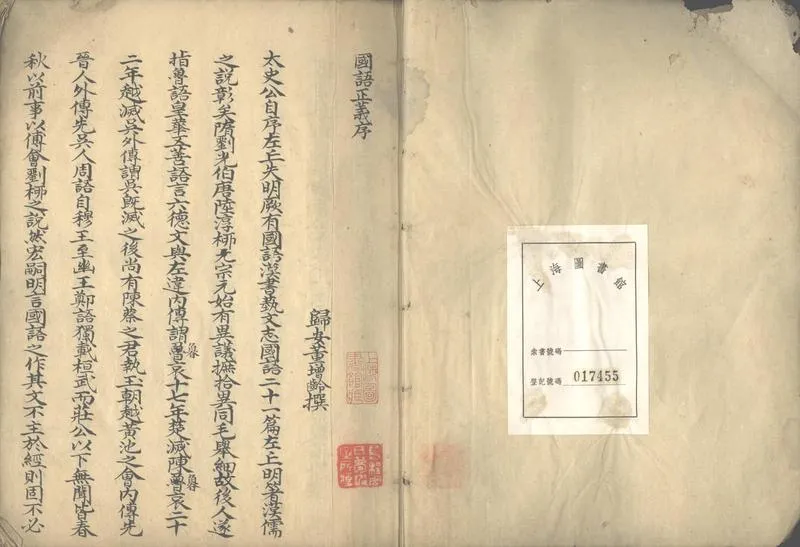 上海圖書館
索書號碼
登記號碼 017455
國語正義序
歸安董增齡撰
太史公自序左丘失明厥有國語漢書藝文志國語二十一篇左丘明著漢儒
之說彰矣隋劉光伯唐陸淳栁宗元始有異議摭拾異同毛舉細故後人遂
指魯語皇華五善語言六德文與左違內傳謂魯哀十七年楚滅陳魯哀二十
二年越滅吳外傳謂吳旣滅之後尚有陳蔡之君執玉朝越黃池之會內傳先
晉人外傳先吳人周語自穆王至幽王鄭語獨載桓武而莊公以下無聞皆春
秋以前事以傅會劉栁之說然宏嗣明言國語之作其文不主於經則固不必